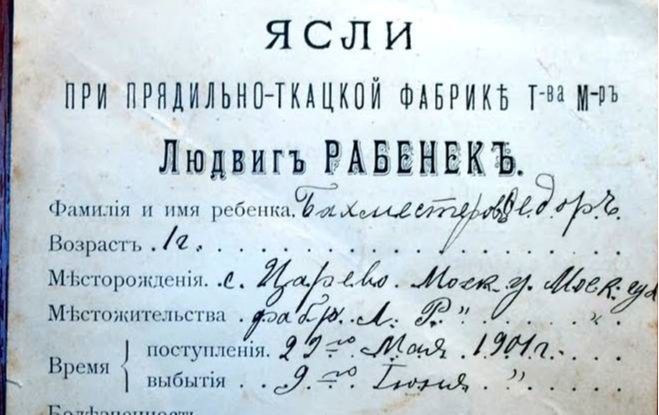 ЯСЛИ
ПРИ ПРЯДИЛЬНО-ТКАЦКОЙ ФАБРИКѢ Т-ва М-ръ
Людвигъ РАБЕНЕКЪ.
Фамилія и имя ребенка. Бахместеровъ Ѳедоръ.
Возрастъ . 1 г.
Мѣсторожденія. с. Царево. Моск. у. Моск. губ
Мѣстожительства . фабр. Л. Р. " "
Время
поступленія. 29го Мая . 1901 г.
выбытія . . 9.го Іюня "
Болѣзненность